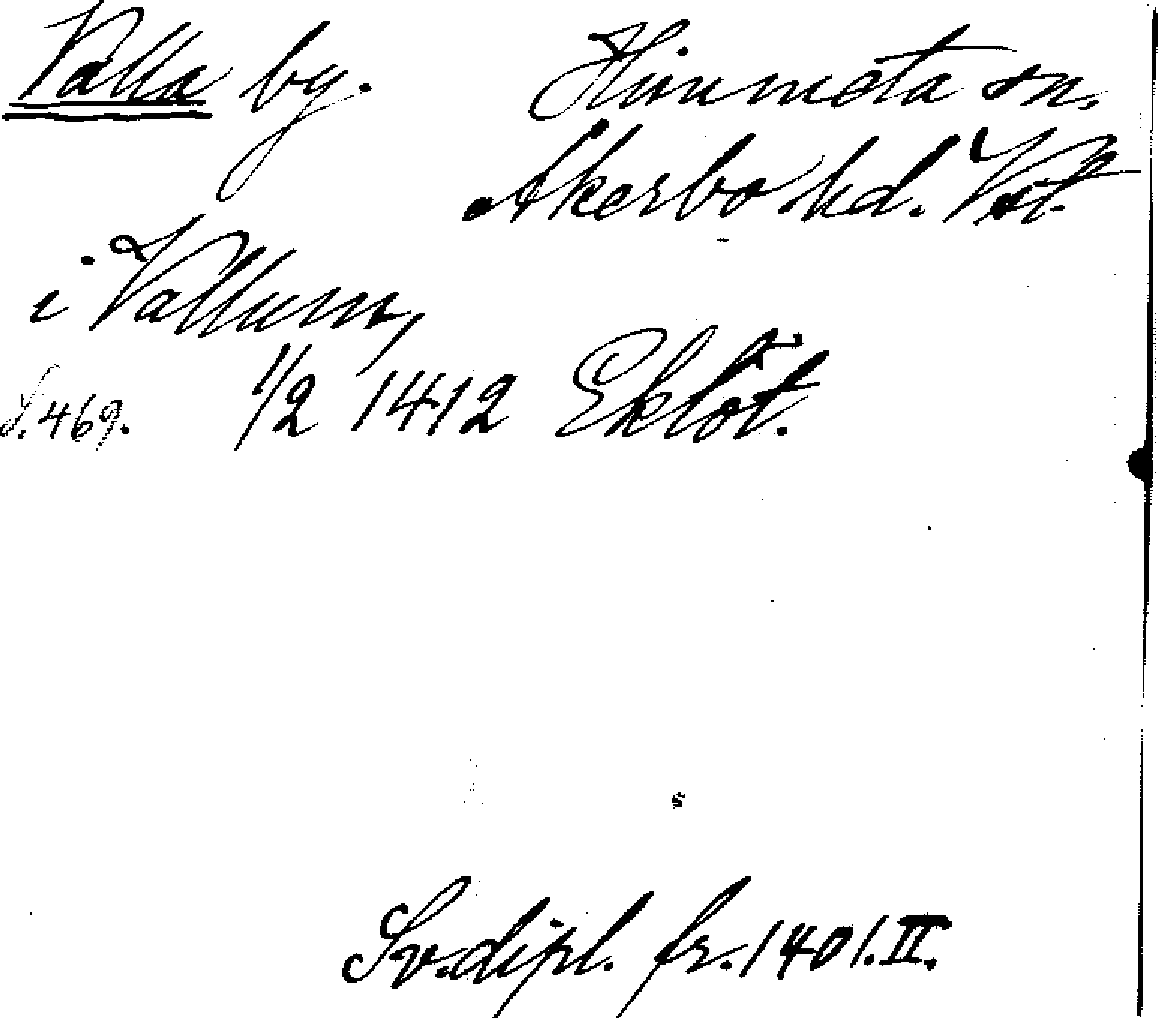 Valla by. Himmeta sn.
Åkerbo hd. Vstm.
i Vallum,
S. 469. 1/2 1412 Eklöt.
Sv. dipl. fr. 1401. II.